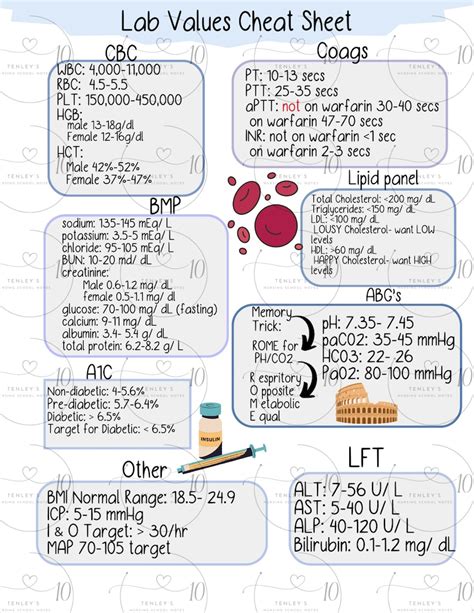 Lab Values Cheat Sheet
CBC
WBC: 4,000-11,000
RBC: 4.5-5.5
PLT: 150,000-450,000
HGB:
male 13-18g/dl
Female 12-16g/dl
HCT:
Male 42%-52%
Female 37%-47%
Coags
PT: 10-13 secs
PTT: 25-35 secs
aPTT: not on warfarin 30-40 secs
on warfarin 47-70 secs
INR: not on warfarin <1 sec
on warfarin 2-3 secs
BMP
sodium: 135-145 mEq/ L
potassium: 3.5-5 mEq/ L
chloride: 95-105 mEq/ L
BUN: 10-20 md/ dL
creatinine:
Male 0.6-1.2 mg/ dL
female 0.5-1.1 mg/ dL
glucose: 70-100 mg/ dL (fasting)
calcium: 9-11 mg/ dL
albumin: 3.4- 5.4 g/ dL
total protein: 6.2-8.2 g/ L
Lipid panel
Total Cholesterol: <200 mg/ dL
Triglycerides: <150 mg/ dL
LDL: <100 mg/ dL
LOUSY Cholesterol- want LOW
levels
HDL: >60 mg/ dL
HAPPY Cholesterol- want HIGH
levels
ABG's
Memory
Trick:
ROME for
PH/CO2
R espritory
O pposite
M etabolic
E qual
pH: 7.35- 7.45
paCO2: 35-45 mmHg
HCO3: 22- 26
PaO2: 80-100 mmHg
A1C
Non-diabetic: 4-5.6%
Pre-diabetic: 5.7-6.4%
Diabetic: > 6.5%
Target for Diabetic: < 6.5%
INSULIN
Other
BMI Normal Range: 18.5- 24.9
ICP: 5-15 mmHg
I & O Target: > 30/hr
MAP 70-105 target
LFT
ALT: 7-56 U/ L
AST: 5-40 U/ L
ALP: 40-120 U/ L
Bilirubin: 0.1-1.2 mg/ dL
TENLEY'S
NURSING SCHOOL NOTES
10